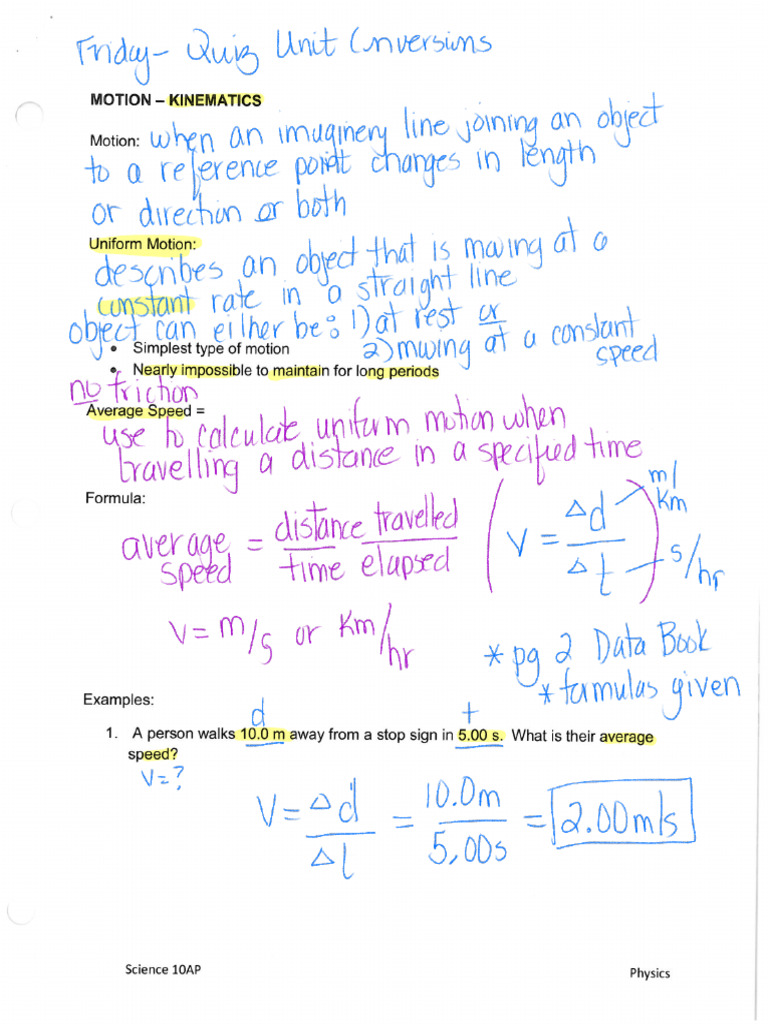 Friday - Quiz Unit Conversions
MOTION – KINEMATICS
Motion: when an imaginery line joining an object
to a reference point changes in length
or direction or both
Uniform Motion:
describes an object that is moving at a
constant rate in a straight line
object can either be: 1) at rest or
• Simplest type of motion 2) moving at a constant speed
• Nearly impossible to maintain for long periods
no friction
Average Speed =
use to calculate uniform motion when
travelling a distance in a specified time
Formula:
average speed = distance travelled / time elapsed (V = Δd / Δt) m/km s/hr
V = m/s or Km/hr
* pg 2 Data Book
* formulas given
Examples:
d t
1. A person walks 10.0 m away from a stop sign in 5.00 s. What is their average
speed?
V = ?
V = Δd / Δt = 10.0m / 5.00s = 2.00m/s
Science 10AP Physics